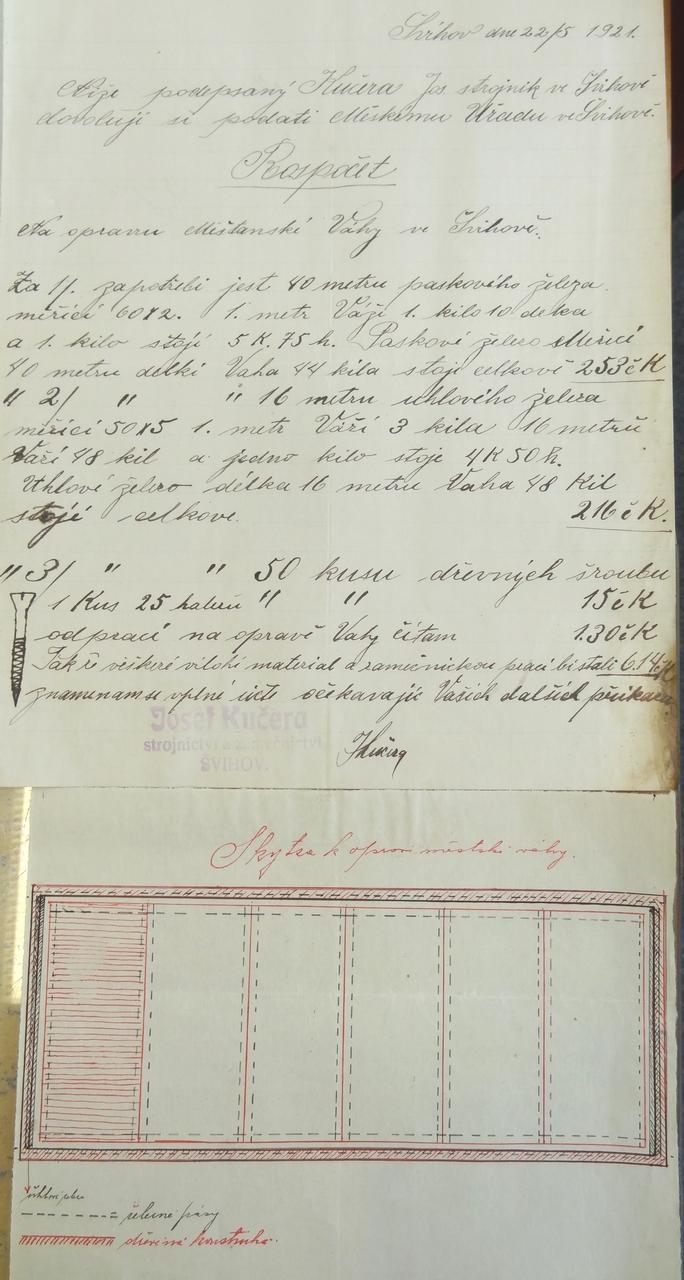 Švihov dne 22/5 1921.
Níže podepsaný Kučera Jos strojnik ve Švihově
dovoluji si podati Městkému Úřadu ve Švihově.
Rospočet
Na opravu Měštanské Váhy ve Švihově.
Za 1/. zapotřebi jest 40 metru paskového železa
měřicí 60x2. 1. metr Váži 1. kilo 10 deka
a 1. kilo stojí 5 K. 75 h. Paskové železo Měřicí
40 metru delki Vaha 44 kila stoji celkově 253 č K
" 2/ " " 16 metru uhlového železa
měřicí 50x5 1. metr Váží 3 kila 16 metrů
Váží 48 kil a jedno kilo stoje 4 K 50 h.
Uhlové želero délka 16 metru Vaha 48 Kil
stojí celkove. 216 č K.
" 3/ " " 50 kusu dřevných šroubu
1 Kus 25 haleru " " 15 č K
od praci na opravě Vahy čítam 130 č K
Tak že veškeré material a zamečnickou praci bi stali 614 č K
znamenam se v plné úctě očekavajic Vašich dalšich přikazu
Josef Kučera
strojnictví a zámečnictví
ŠVIHOV.
JKučera
Skytza k opravě městské váhy.
úhlové
železné pásy
dřevěná konstrukce.